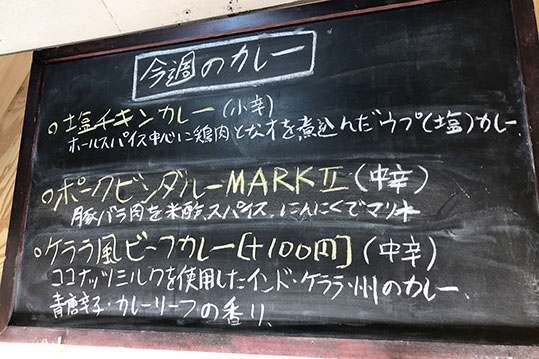 今週のカレー
○塩チキンカレー(小辛)
ホールスパイス中心に鶏肉となすを煮込んだウプ(塩)カレー
○ポークビンダルーMARKⅡ(中辛)
豚バラ肉を米酢、スパイス、にんにくでマリネ
○ケララ風ビーフカレー[+100円](中辛)
ココナッツミルクを使用したインド・ケララ州のカレー、
青唐辛子・カレーリーフの香り、